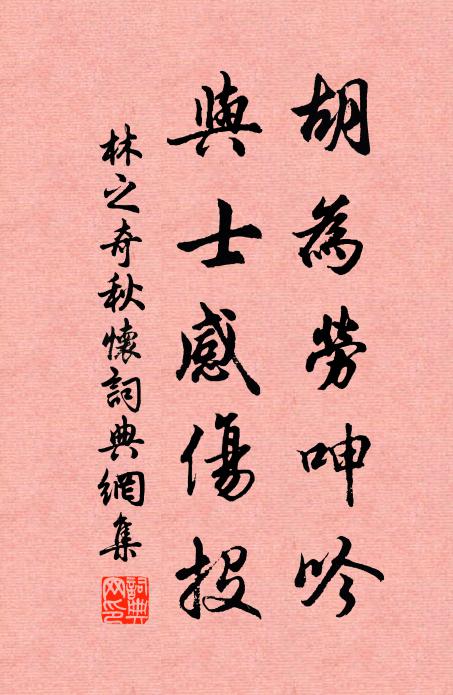 胡為勞呻吟
與士感傷投
林之奇秋懷詞典網集
詞典網印